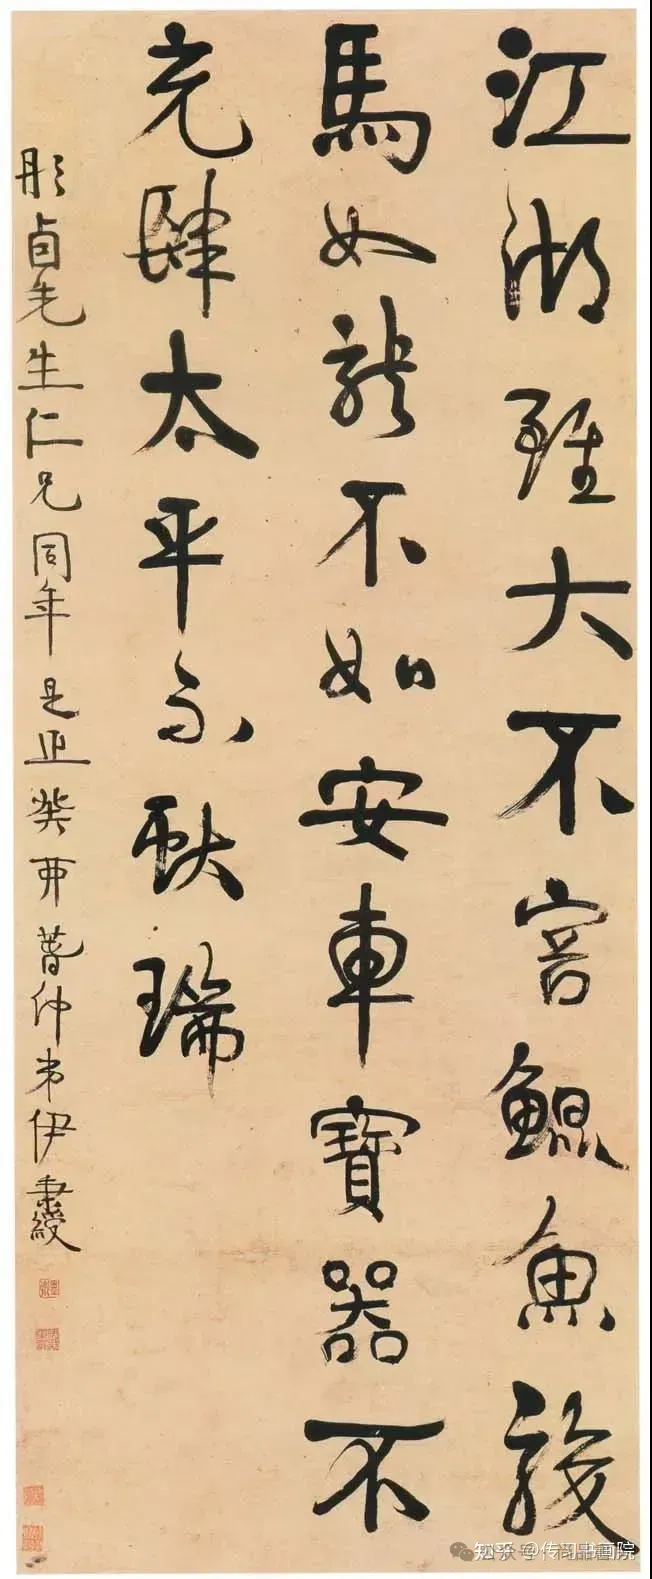 江湖雖大不容鯤魚駿
馬如龍不如安車寶器不
充肆太平獻瑞
彤卣先生仁兄同年是正癸酉萅仲弟伊秉綬
知乎 @传习书画院
公众号